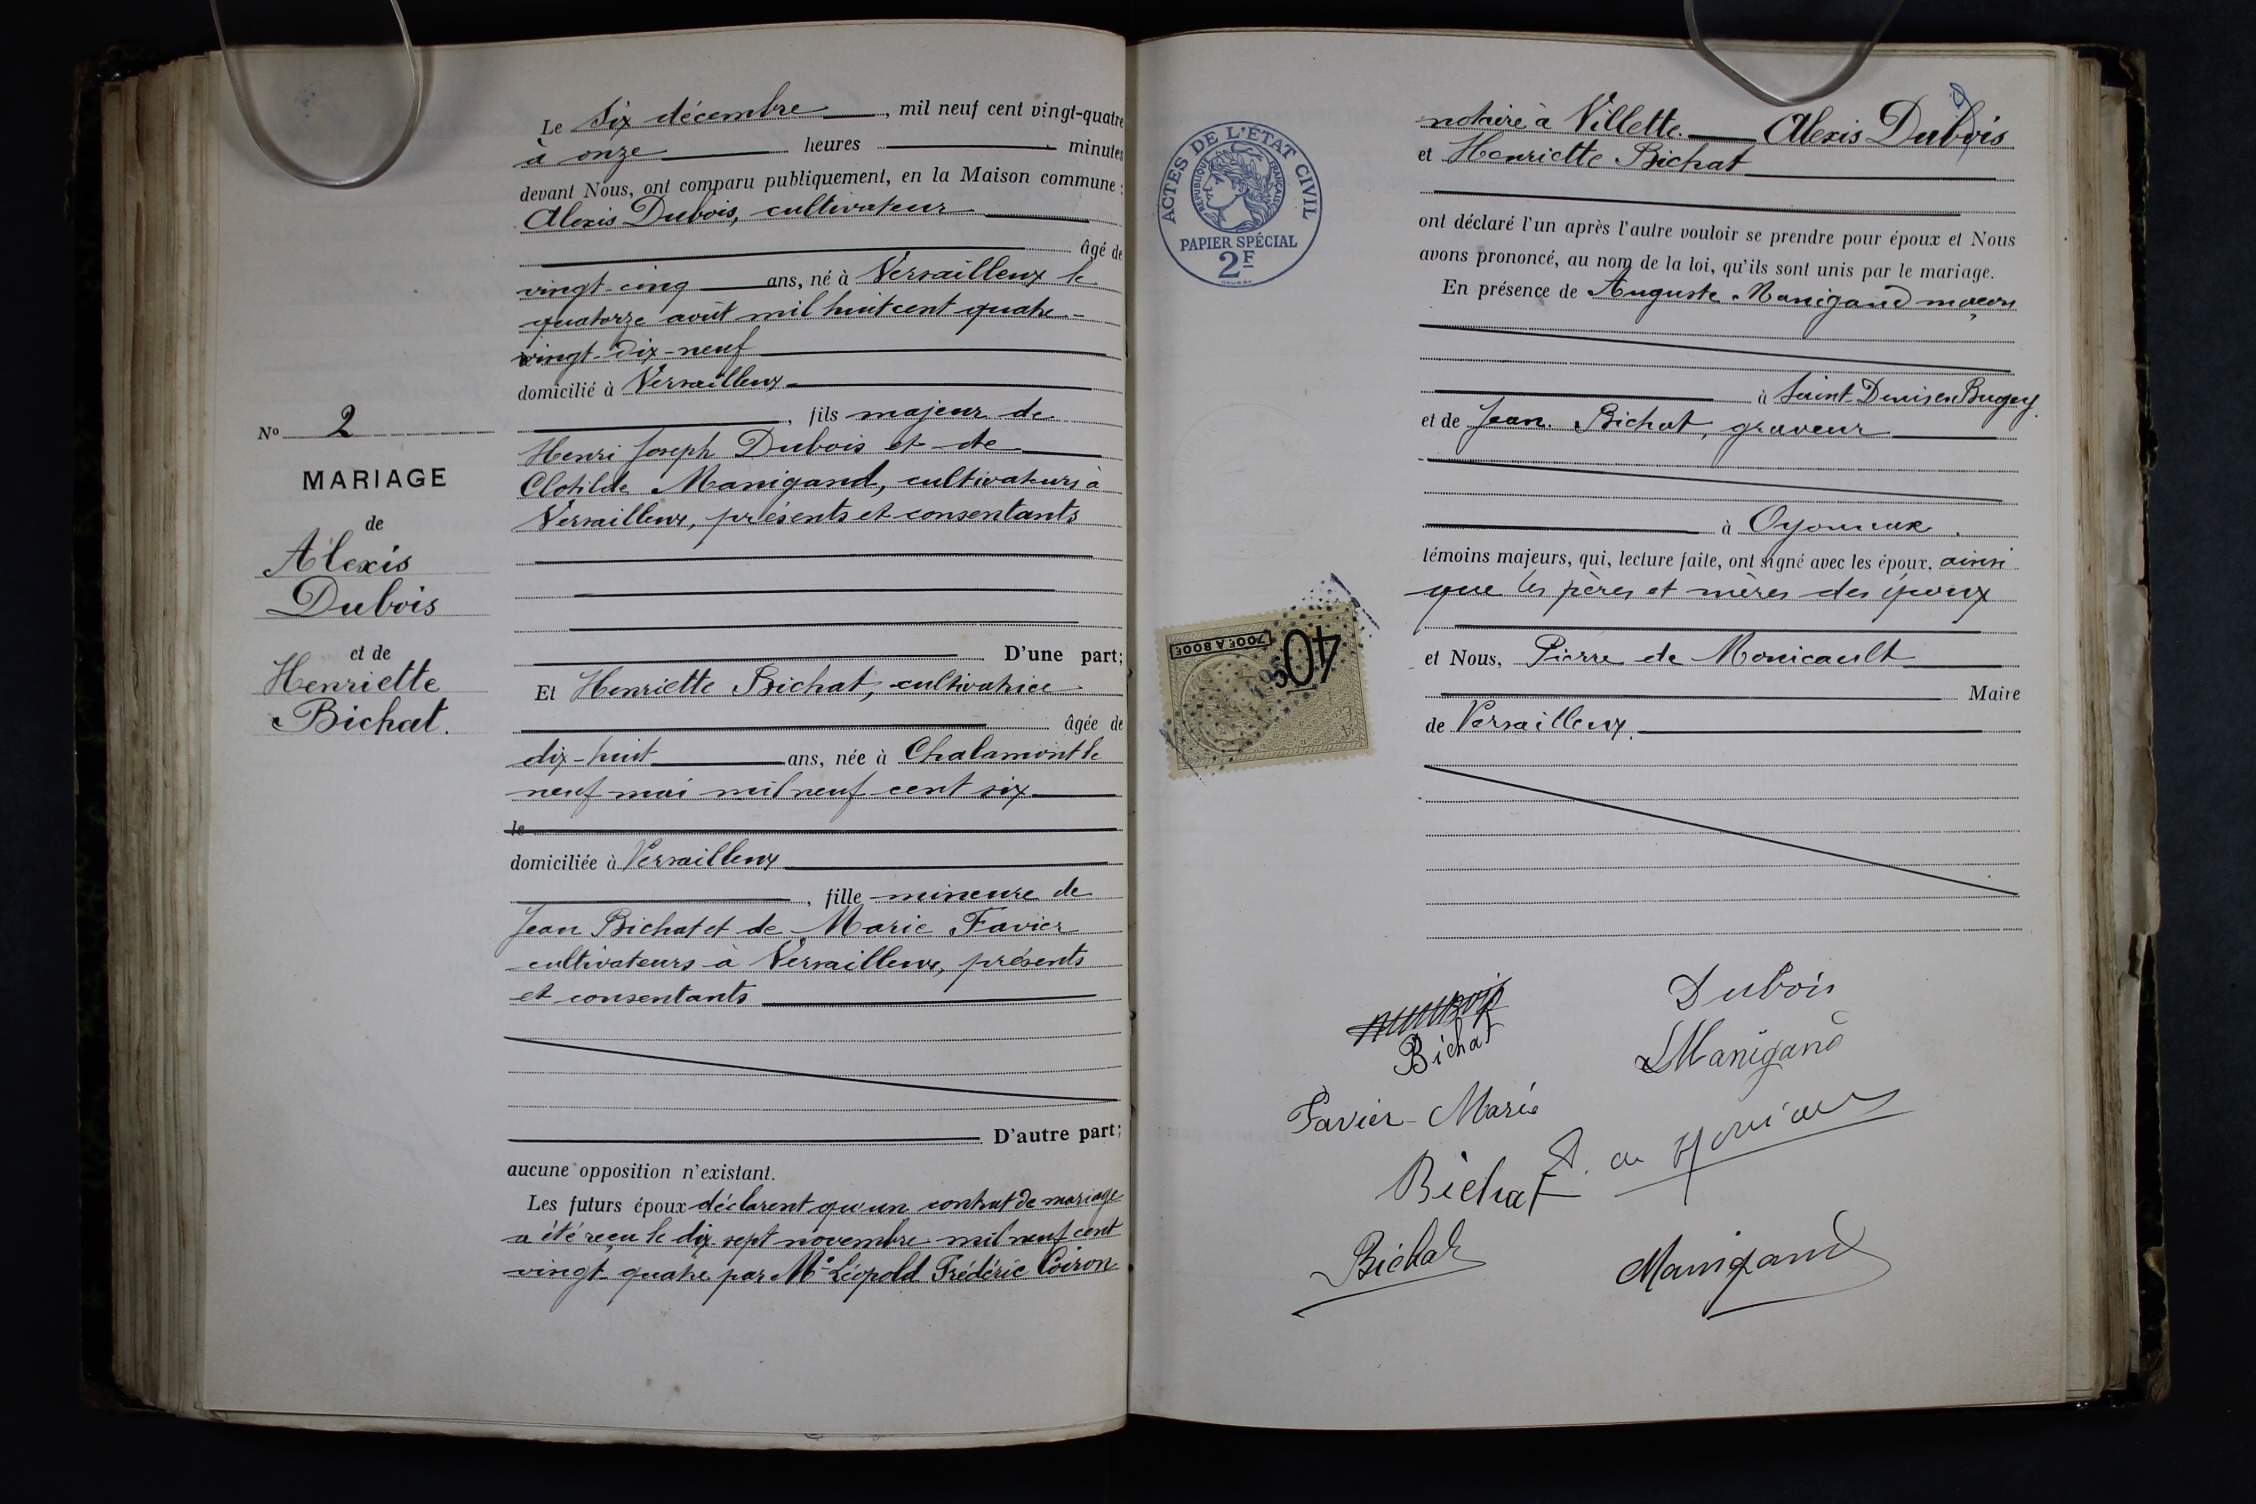 Le Six décembre, mil neuf cent vingt-quatre
à onze heures minutes
devant Nous, ont comparu publiquement, en la Maison commune :
Alexis Dubois, cultivateur
âgé de
vingt-cinq ans, né à Versailleux le
quatorze août mil huit cent quatre-
vingt-dix-neuf
domicilié à Versailleux
, fils majeur de
Henri Joseph Dubois et de
Clotilde Manigand, cultivateurs à
Versailleux, présents et consentants
D'une part;
Et Henriette Bichat, cultivatrice
âgée de
dix-huit ans, née à Chalamont le
neuf mai mil neuf cent six
le
domiciliée à Versailleux
, fille mineure de
Jean Bichat et de Marie Favier
cultivateurs à Versailleux, présents
et consentants
D'autre part;
aucune opposition n'existant.
Les futurs époux déclarent qu'un contrat de mariage
a été reçu le dix-sept novembre mil neuf cent
vingt-quatre par Me Léopold Frédéric Coiron
No 2
MARIAGE
de
Alexis
Dubois
et de
Henriette
Bichat.
notaire à Villette. Alexis Dubois
et Henriette Bichat
ont déclaré l'un après l'autre vouloir se prendre pour époux et Nous
avons prononcé, au nom de la loi, qu'ils sont unis par le mariage.
En présence de Auguste Manigand maçon
à Saint-Denis en Bugey.
et de Jean Bichat, graveur
à Oyonnax.
témoins majeurs, qui, lecture faite, ont signé avec les époux, ainsi
que les pères et mères des époux
et Nous, Pierre de Monicault
Maire
de Versailleux.
ACTES DE L'ÉTAT CIVIL
RÉPUBLIQUE FRANÇAISE
PAPIER SPÉCIAL
2F
700F A 800F
40
Dubois
Bichat
Manigand
Favier Marie
Bichat
Bichat
Manigand